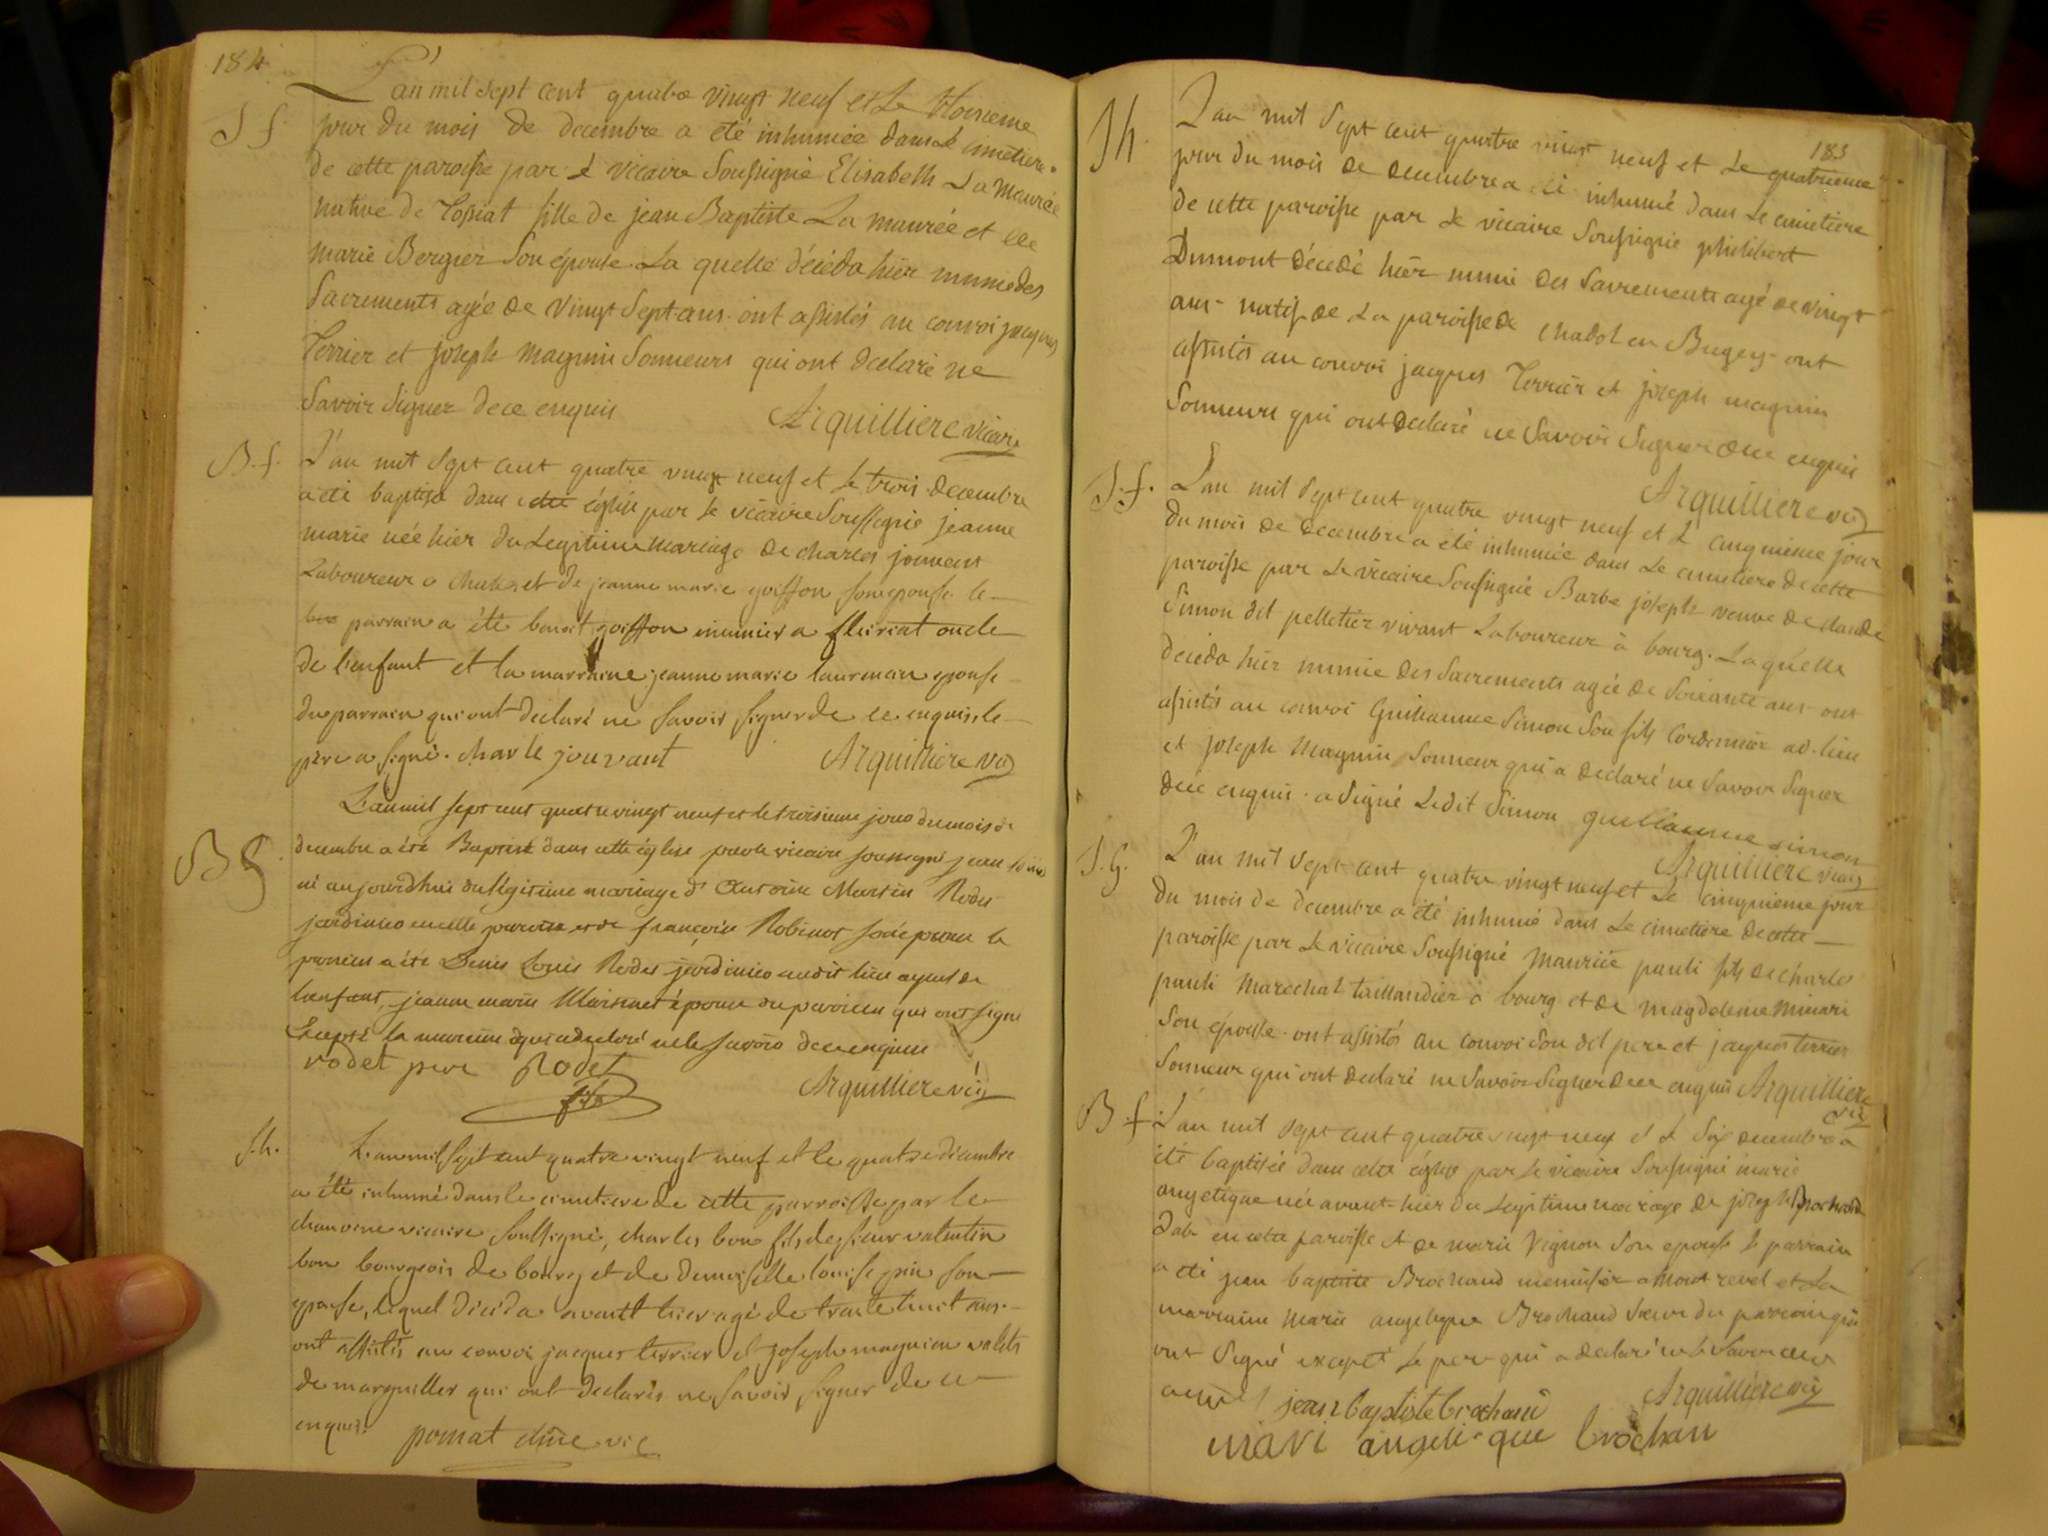 184
L'an mil sept cent quatre vingt neuf et Le troisieme
S f. jour du mois de decembre a été inhumée dans le cimetiere
de cette paroisse par Le vicaire Soussigné Elisabeth La Maurée
native de Tossiat fille de jean Baptiste La Maurée et de
marie Bergier Son épouse. La quelle décéda hier munie des
Sacrements agée de vingt Sept ans. ont assistés au convoi jacques
Terrier et joseph magnin Sonneurs qui ont declaré ne
Savoir Signer de ce enquis Arquilliere vicaire
B. f. L'an mil Sept cent quatre vingt neuf et Le trois decembre
a été baptisé dans cette église par Le vicaire Soussigné jeanne
marie née hier du Legitime mariage de charles jouvent
Laboureur a et de jeanne marie goiffon son epouse le
parrain a été benoit goiffon meunier a fleiriat oncle
de l'enfant et la marraine jeanne marie laurencin epouse
du parrain qui ont declaré ne savoir signer de ce enquis le
pere a signé. charle jouvant Arquilliere vic
B G L'an mil sept cent quatre vingt neuf et le troisieme jour du mois de
decembre a été Baptisé dans cette église par le vicaire soussigné jean
né aujourdhui du légitime mariage d'Antoine Martin Rodet
jardinier en cette paroisse et de françoise Robinot son épouse le
parrain a été Denis Louis Rodet jardinier audit lieu ayeul de
l'enfant, jeanne marie épouse du parrain qui ont signé
Excepté la marraine qui a declaré ne le savoir de ce enquise
rodet pere Rodet
fils Arquilliere vic
S. h. L'an mil sept cent quatre vingt neuf et le quatre decembre
a été inhumé dans le cimetiere de cette parroisse par le
chanoine vicaire soussigné, charles bon fils de sieur valentin
bon bourgeois de bourg et de demoiselle louise pin son
epouse, lequel décéda avant hier agé de trente huit ans.
ont assistés au convoi jacques terrier et joseph magnien valets
de marguiller qui ont declarés ne savoir signer de ce
enquis. pomat chne vic
183
S h. L'an mil Sept cent quatre vingt neuf et Le quatrieme
jour du mois de decembre a été inhumé dans Le cimetiere
de cette paroisse par Le vicaire Soussigné philibert
Dumont décédé hier muni des Sacrements agé de vingt
ans natif de La paroisse de chadol en Bugey ont
assistés au convoi jacques Terrier et joseph magnin
Sonneurs qui ont declaré ne Savoir Signer de ce enquis
Arquilliere vic
S. f. L'an mil Sept cent quatre vingt neuf et Le cinquieme jour
du mois de decembre a été inhumée dans Le cimetiere de cette
paroisse par Le vicaire Soussigné Barbe joseph veuve de claude
Simon dit pelletier vivant Laboureur à bourg. Laquelle
décéda hier munie des Sacrements agée de Soixante ans ont
assistés au convoi Guillaume Simon Son fils Cordonnier ad. lieu
et joseph Magnin Sonneur qui a declaré ne Savoir Signer
de ce enquis. a Signé Ledit Simon guillaume simon
Arquilliere vic
S. G. L'an mil Sept cent quatre vingt neuf et Le cinquieme jour
du mois de decembre a été inhumé dans Le cimetiere de cette
paroisse par Le vicaire Soussigné Mauriée pauli fils de charle
pauli Marechal taillandier à bourg et de magdeleine Minari
Son épouse. ont assistés au convoi Son dit pere et jacques terrier
Sonneur qui ont declaré ne Savoir Signer de ce enquis Arquilliere
vic
B f. L'an mil Sept cent quatre vingt neuf et Le Six decembre a
été baptisée dans cette église par Le vicaire Soussigné marie
angelique née avant-hier du Legitime mariage de joseph Brochand
en cette paroisse et de marie Vignon Son epouse Le parrain
a été jean baptiste Brochand menuisier a Mont revel et La
marraine Marie angelique Brochand Sœur du parrain qui
ont Signé excepté Le pere qui a declaré ne le Savoir de ce
Arquilliere vic
jean baptiste brochand
mari angelique brochan